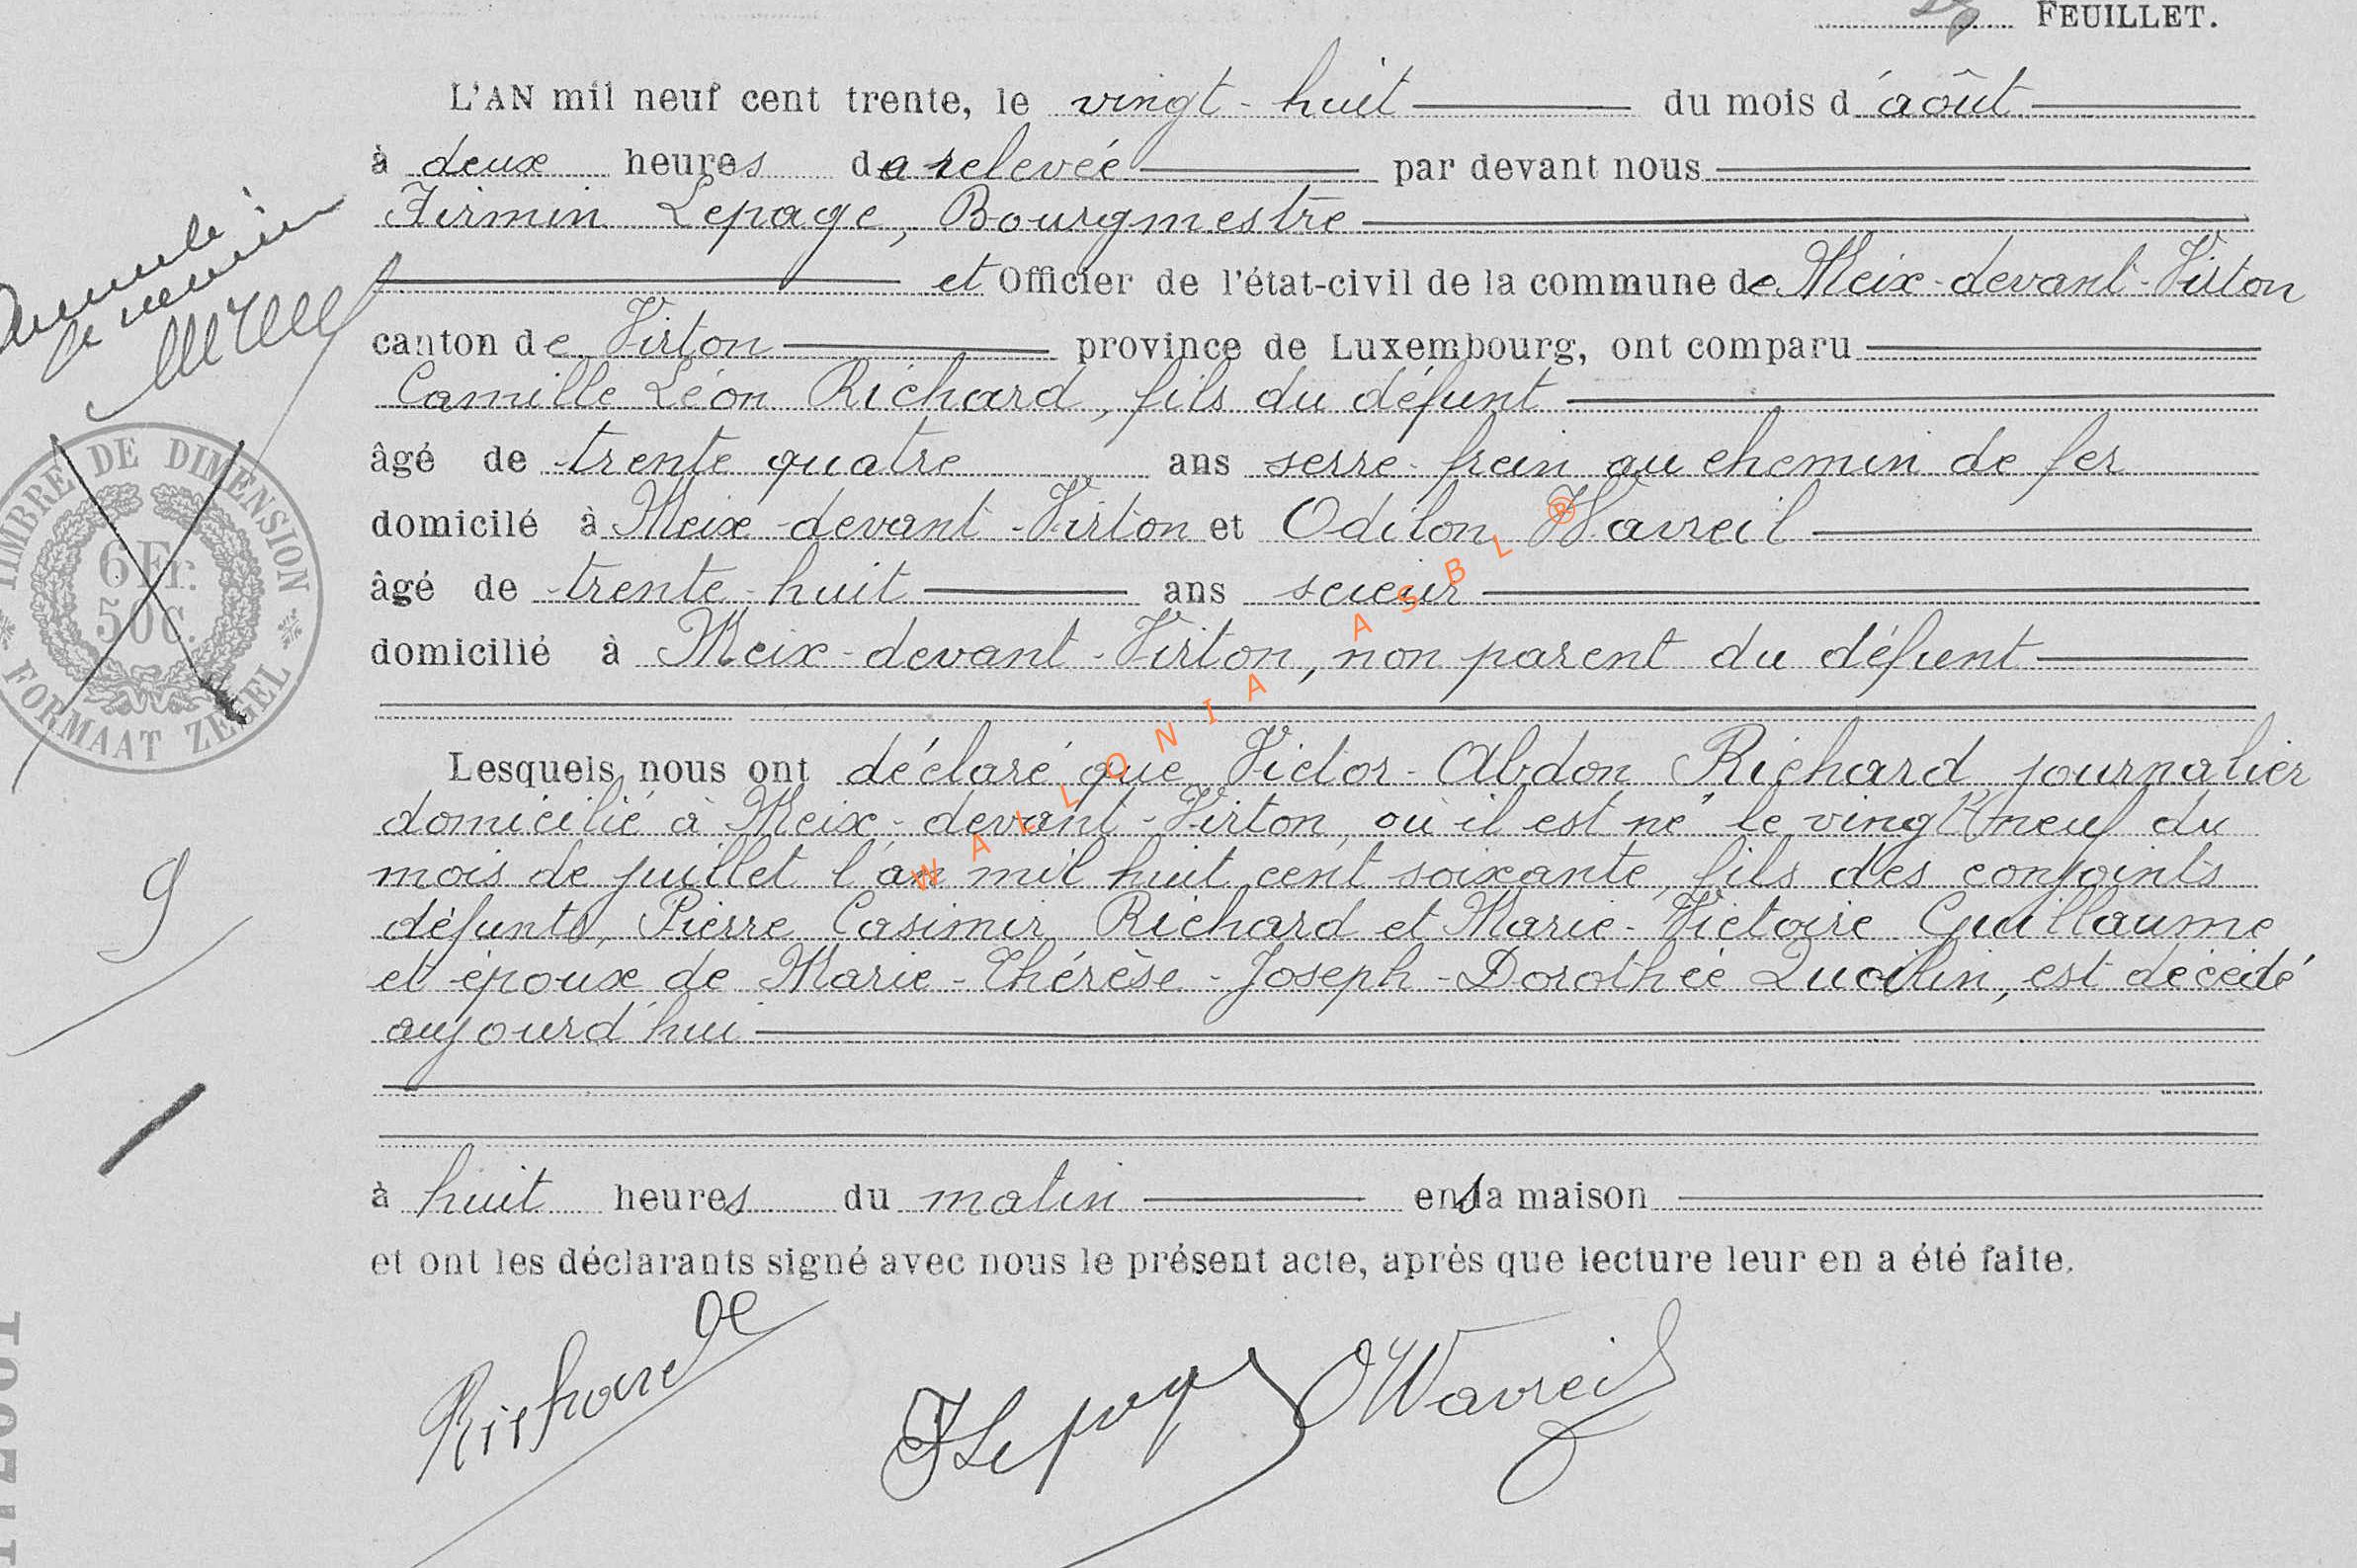 FEUILLET.
L'AN mil neuf cent trente, le vingt-huit du mois d'août
à deux heures de relevée par devant nous
Firmin Lepage, Bourgmestre
et Officier de l'état-civil de la commune de Meix-devant-Virton
canton de Virton province de Luxembourg, ont comparu
Camille Léon Richard, fils du défunt
âgé de trente quatre ans serre-frein au chemin de fer
domicilé à Meix-devant-Virton et Odilon Wavreil
âgé de trente-huit ans scieur
domicilié à Meix-devant-Virton, non parent du défunt
Lesquels nous ont déclaré que Victor-Abdon Richard journalier
domicilié à Meix-devant-Virton, où il est né le vingt neuf du
mois de juillet l'an mil huit cent soixante, fils des conjoints
défunts, Pierre Casimir Richard et Marie-Victoire Guillaume
et époux de Marie-Thérèse-Joseph-Dorothée Quoilin, est décédé
aujourd'hui
à huit heures du matin en sa maison
et ont les déclarants signé avec nous le présent acte, après que lecture leur en a été faite.
Richard
FLepage
OWavreil
Annulé
TIMBRE DE DIMENSION
6 Fr.
50 C.
FORMAAT ZEGEL
9
WALLONIA ASBL ®